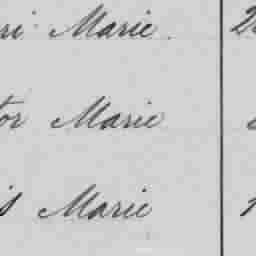 ri Marie.
tor Marie
is Marie